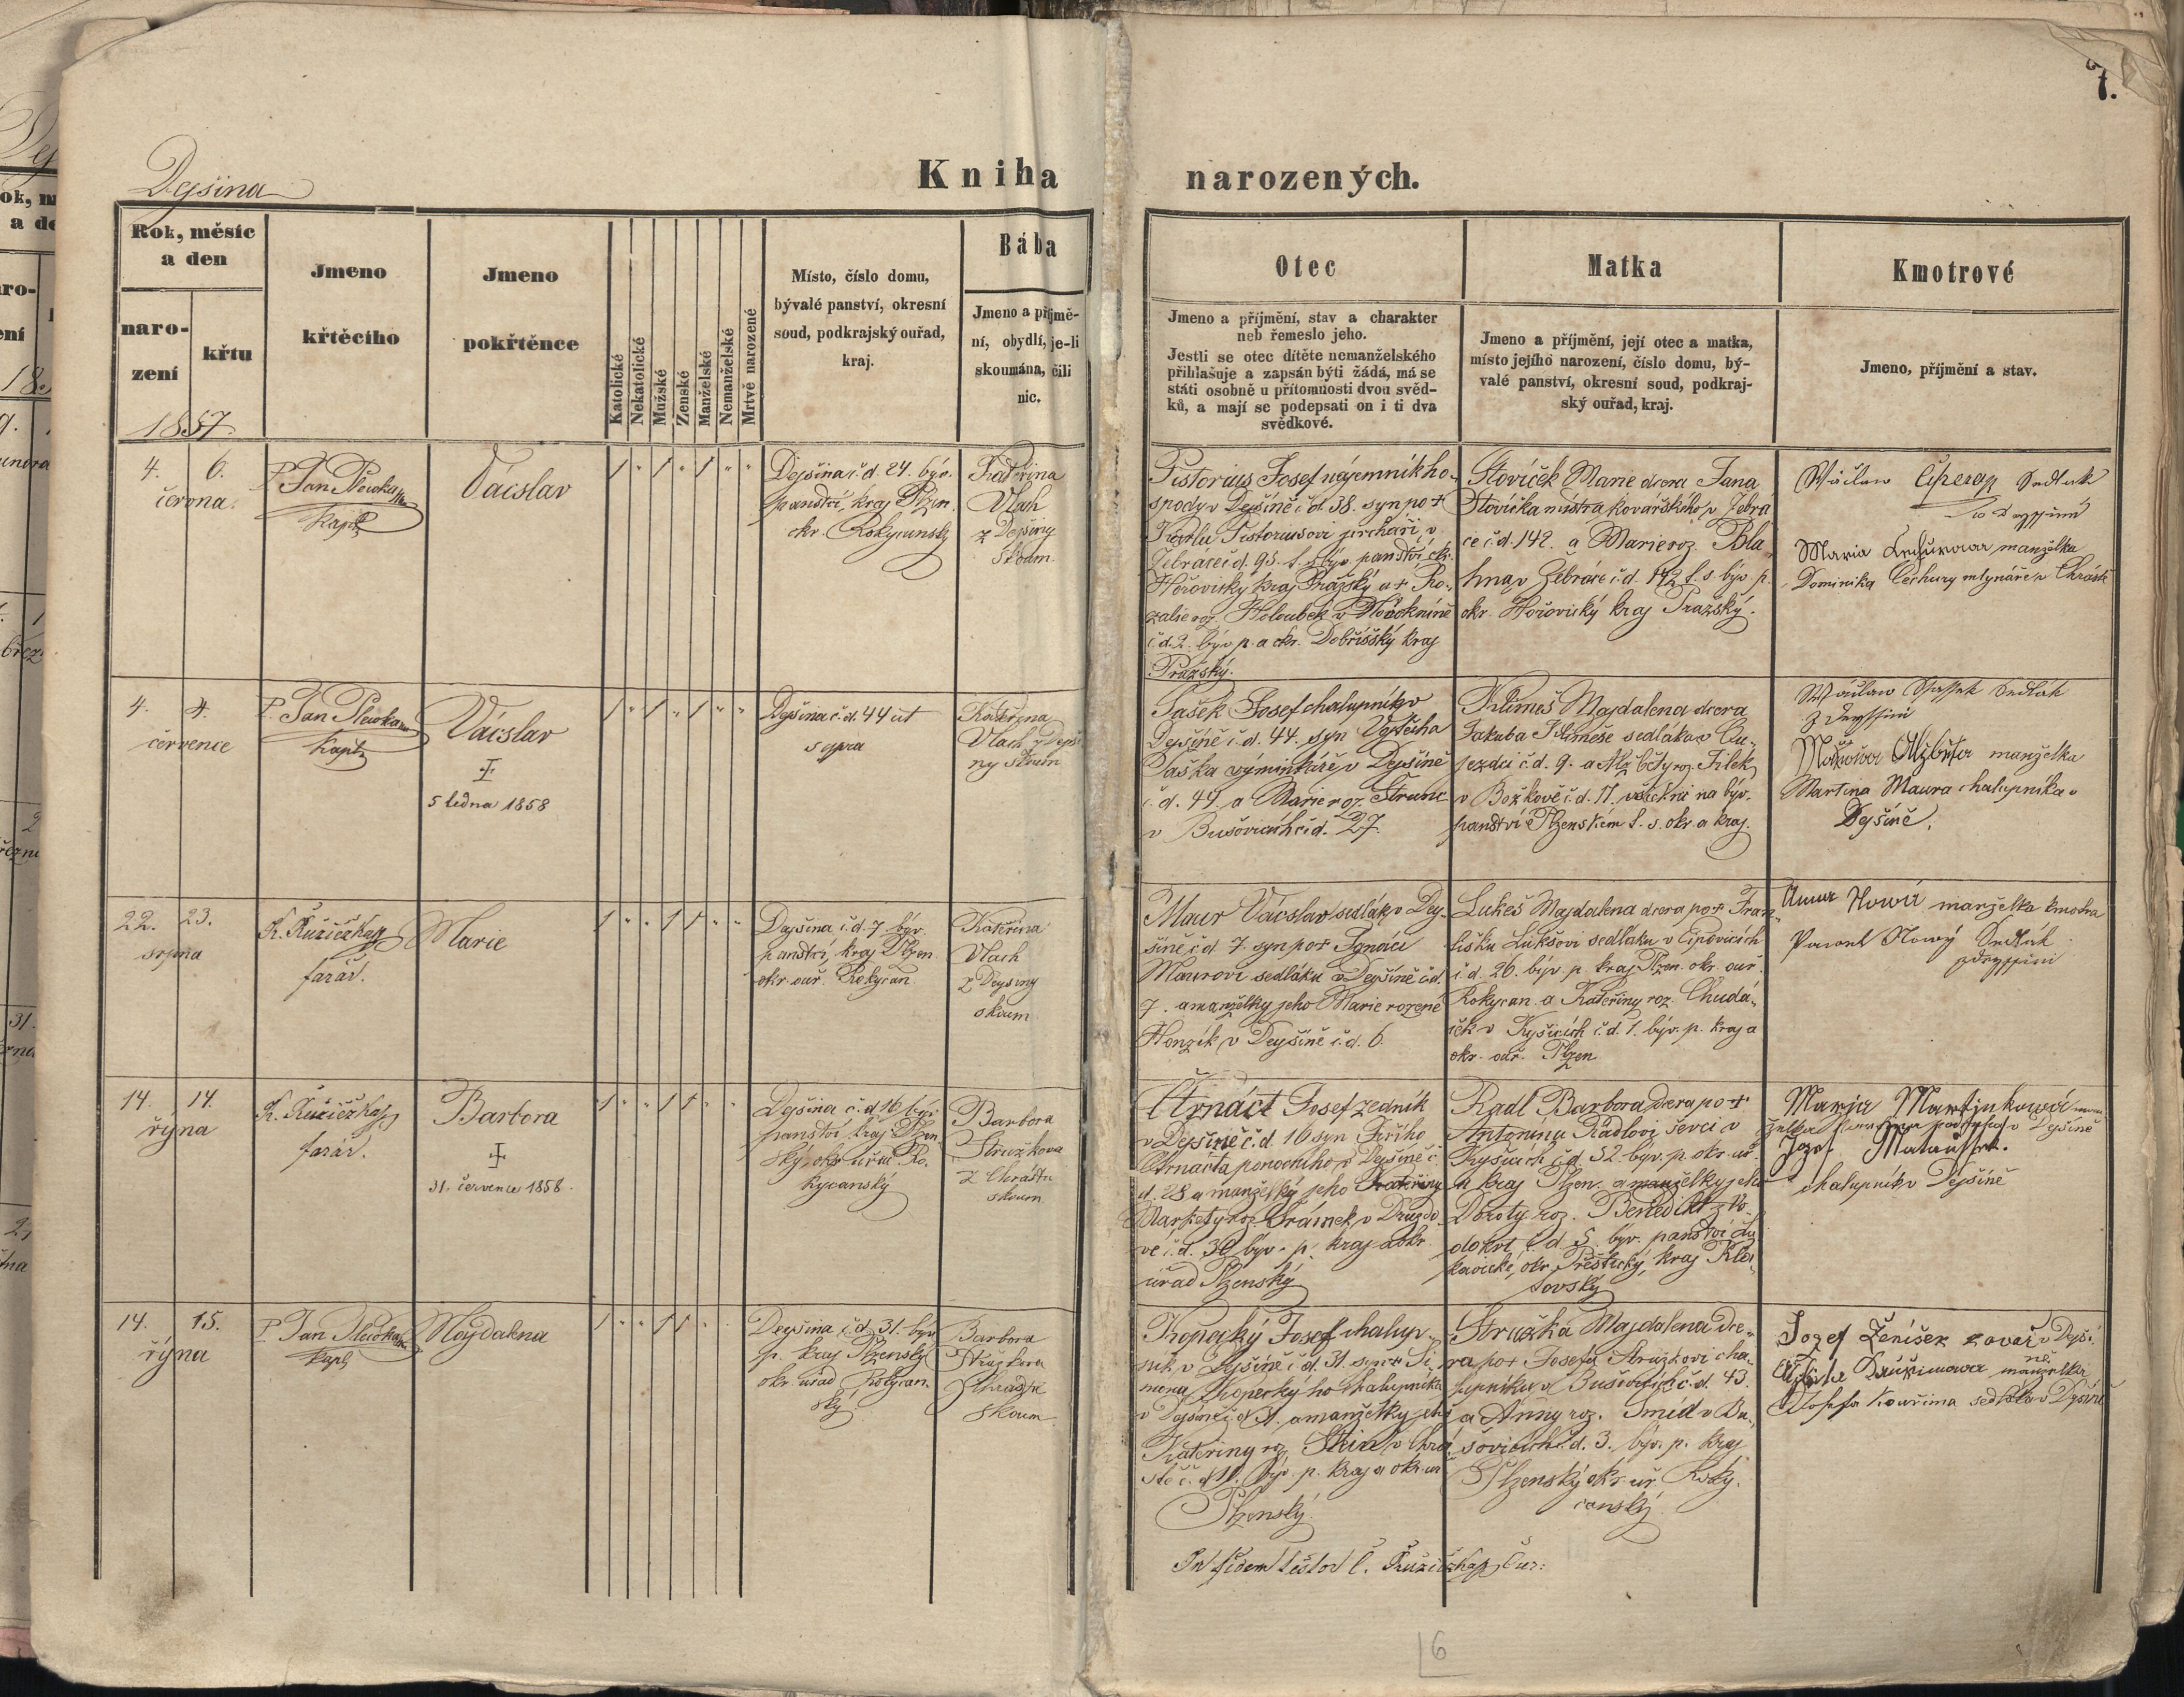 7.
Dejšina
Kniha narozených.
Rok, měsíc
a den
naro-
zení
křtu
Jmeno
křtěcího
Jmeno
pokřtěnce
Katolické
Nekatolické
Mužské
Ženské
Manželské
Nemanželské
Mrtvě narozené
Místo, číslo domu,
bývalé panství, okresní
soud, podkrajský ouřad,
kraj.
Bába
Jmeno a příjmě-
ní, obydlí, je-li
skoumána, čili
nic.
Otec
Jmeno a příjmění, stav a charakter
neb řemeslo jeho.
Jestli se otec dítěte nemanželského
přihlašuje a zapsán býti žádá, má se
státi osobně u přítomnosti dvou svěd-
ků, a mají se podepsati on i ti dva
svědkové.
Matka
Jmeno a příjmění, její otec a matka,
místo jejího narození, číslo domu, bý-
valé panství, okresní soud, podkraj-
ský ouřad, kraj.
Kmotrové
Jmeno, příjmění a stav.
1857.
4. 6.
června.
P. Jan Plewka
Kapl.
Vácslav
Dejšina č. d. 24. býv.
panství, kraj Plzen.
okr. Rokycanský
Kateřina
Vlach
z Dejšiny
skoum.
Pistorius Josef nájemník ho-
spody v Dejšíně č. d. 38. syn po +
Karlu Pistoriusovi jircháři v
Žebráce č. d. 95. t. s. býv. panství okr.
Hořovický kraj Pražský a + Ro-
zalie roz. Holoubek v
č. d. 2. býv. p. a okr. Dobříšský kraj
Pražský.
Slovíček Marie dcera Jana
Slovíčka mistra kovářského v Žebrá
ce č. d. 142. a Marie roz. Bla-
hna v Žebráce č. d. 142 t. s. býv. p.
okr. Hořovický kraj Pražský.
Wáclaw Sedlak
w
Maria manželka
Dominika Cechury mlynáře v Chrástě
4. 4.
července
P. Jan Plewka
Kapl.
Vácslav
5 ledna 1858
Dejšina č. d. 44 ut
supra
Kateřina
Vlach z Dejši
ny skoum
Pašek Josef chalupník v
Dejšíně č. d. 44. syn Vojtěcha
Paška výminkáře v Dejšíně
č. d. 44. a Marie roz. Strunc
v Bušovicích č. d. 27.
Klimeš Magdalena dcera
Jakuba Klimeše sedláka v Ou-
jezdci č. d. 9. a Alžběty roz. Filek
v Božkově č. d. 11. všickni na býv.
panství Plzenském t. s. okr. a kraj.
Wáclaw Sedlák
z
Alžběta manželka
Martina Maura chalupníka v
Dejšíně.
22. 23.
srpna
K. Růžička
farář.
Marie
Dejšina č. d. 7. býv.
panství, kraj Plzen.
okr. ouř. Rokycan.
Kateřina
Vlach
z Dejšiny
skoum.
Maur Vácslav sedlák v Dej-
šíně č. d. 7. syn po + Ignáci
Maurovi sedláku v Dejšíně č. d.
7. a manželky jeho Marie rozené
Honzík v Dejšíně č. d. 6.
Lukeš Magdalena dcera po + Fran-
tišku Lukšovi sedláku v Lipovicích
č. d. 26. býv. p. kraj Plzen. okr. ouř.
Rokycan. a Kateřiny roz. Chudá-
ček v Kyšicích č. d. 1. býv. p. kraj a
okr. ouř. Plzen
Anna Nowá manželka kmotra
Pawel Nowý Sedlák
14. 14.
října
K. Růžička
farář.
Barbora
31. července 1858.
Dejšina č. d. 16 býv.
panství, kraj Plzen-
ský, okr. úřad Ro-
kycanský
Barbora
Stružkova
z Chrástu
skoum.
Čtrnáct Josef zedník
v Dejšíně č. d. 16 syn Jiřího
Čtrnácta ponocného v Dejšíně č.
d. 28 a manželky jeho Kateřiny
Markety roz. Šrámek v Druzdo-
vě č. d. 30. býv. p. kraj a okr.
úřad Plzenský
Radl Barbora dcera po +
Antonínu Radlovi ševci v
Kyšicích č. d. 32. býv. p. okr. uř.
a kraj Plzen. a manželky jeho
Doroty roz. Benedikt z Vo-
dokrt č. d. 5. býv. panství
okr. Přeštický, kraj Kla-
tovský
Marja Martínkowá man-
želka v Dejšíně
Jozef
chalupník v Dejšíně
14. 15.
října
P. Jan Plewka
Kapl.
Magdalena
Dejšina č. d. 31. býv.
p. kraj Plzenský
okr. úřad Rokycan-
ský
Barbora
Stružkova
z Chrástu
skoum.
Kopecký Josef chalup-
ník v Dejšíně č. d. 31. syn + Ši-
mona Kopeckýho chalupníka
v Dejšíně č. d. 31. a manželky jeho
Kateřiny roz. v Chrá-
stě č. d. 11. býv. p. kraj a okr. uř
Plzenský.
Stružka Magdalena dce-
ra po + Josefu Stružkovi cha-
lupníku v Bušovicích č. d. 43.
a Anny roz. Šmíd v Bu-
šovicích č. d. 3. býv. p. kraj
Plzenský okr. uř. Roky-
canský.
Jozef Ženíšek kovář v Dejši-
ně
Alžběta manželka
Josefa Kouřima sedláka v Dejšíně
In fidem testor C. Růžička Cur:
6